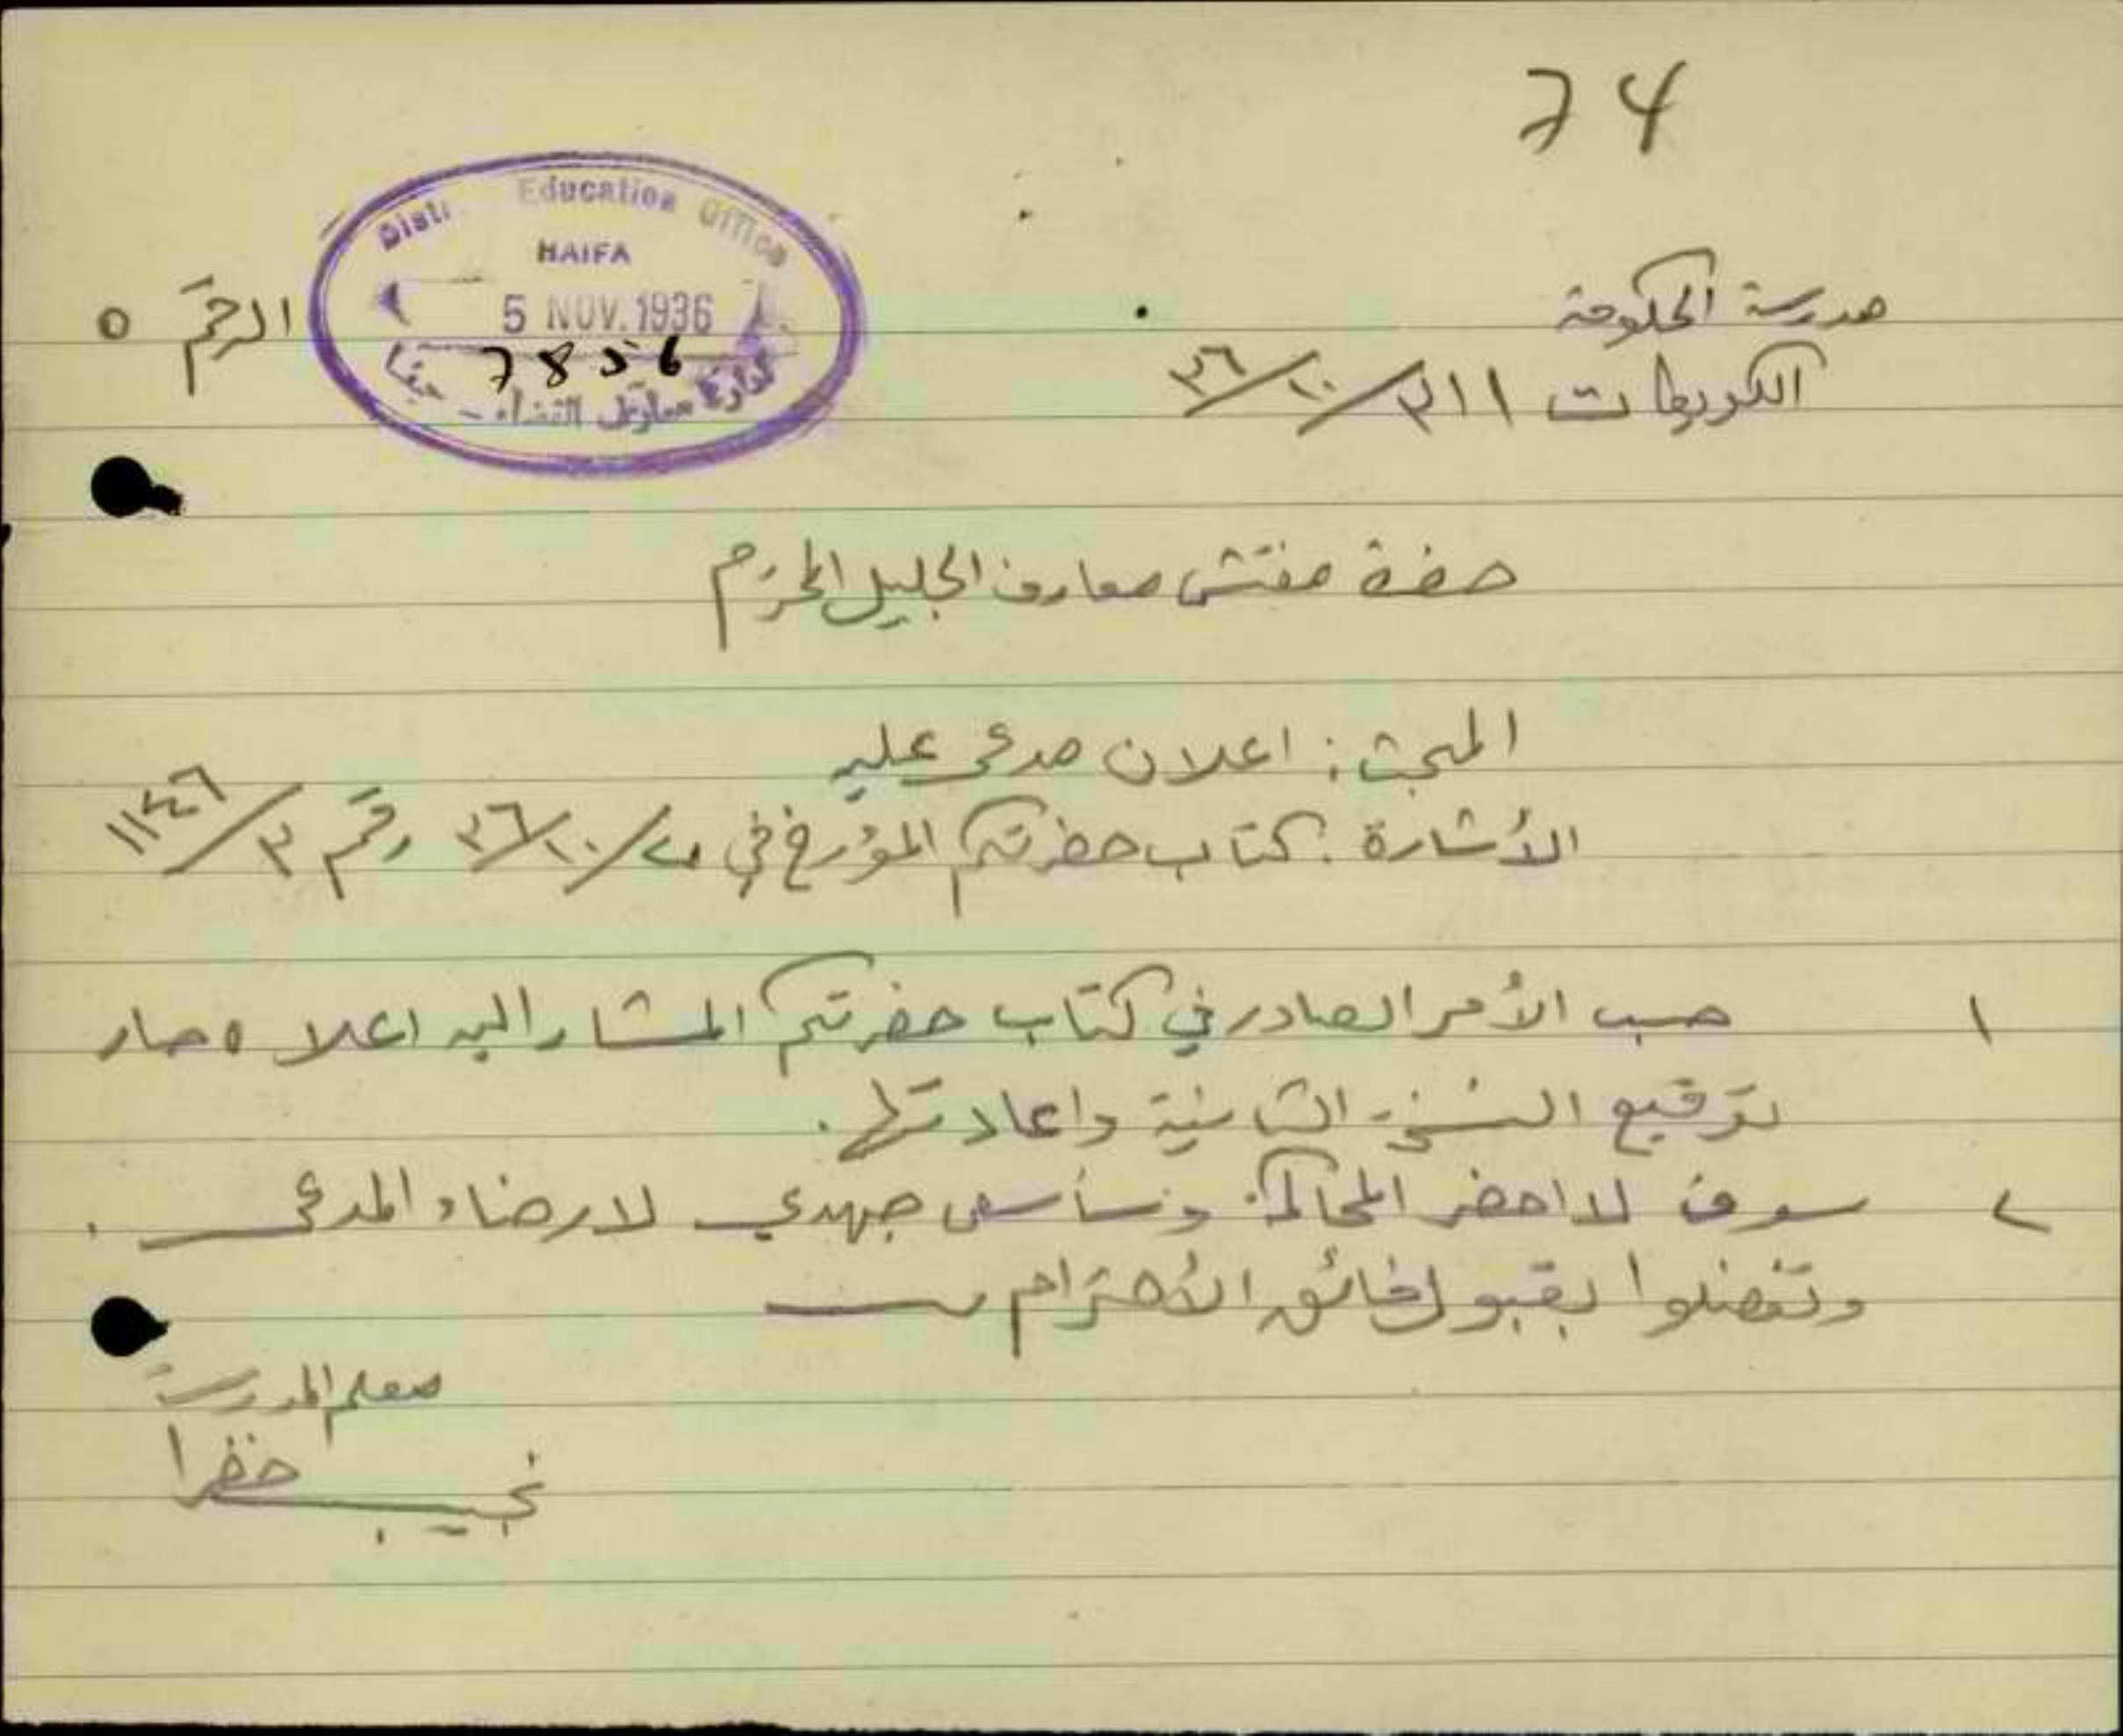 74
District Education Office
HAIFA
5 NOV. 1936
7856
ادارة معارف القضاء - حيفا
مدرسة الحكومة
الرقم ٥
الكويكات ٣١/١٠/٣٦
حضرة مفتش معارف الجليل المحترم
المبحث: اعلان مدعى عليه
الأشارة: كتاب حضرتكم المؤرخ في /١٠/٣٦ رقم
١ حسب الأمر الصادر في كتاب حضرتكم المشار اليه اعلاه صار
توقيع النسخة الثانية واعادتها.
٢ سوف لا احضر المحاكمة وسأسعى جهدي لارضاء المدعى.
وتفضلوا بقبول فائق الأحترام
معلم المدرسة
نجيب خضرا